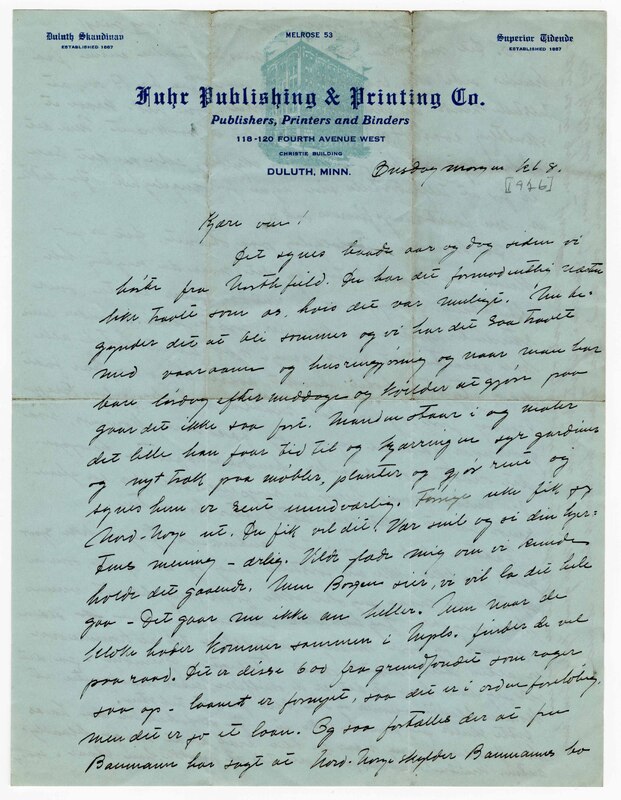 Duluth Skandinav
ESTABLISHED 1887
MELROSE 53
Superior Tidende
ESTABLISHED 1887
Fuhr Publishing & Printing Co.
Publishers, Printers and Binders
118-120 FOURTH AVENUE WEST
CHRISTIE BUILDING
DULUTH, MINN.
morgen 8.
[1926]
Kjære ven!
Det synes baade aar og dag siden vi
hørte fra Northfield. Du har det formodentlig næsten
like travelt som os, hvis det var muligt. Nu be-
gynder det at bli sommer og vi har det saa travelt
med og husrengjøring og naar man har
bare lørdag eftermiddage og kvelder at gjøre paa
gaar det ikke saa fort. Manden staar i og maler
det lille han faar tid til og kjærringen syr gardiner
og nyt træk paa møbler, planter og gjør rent og
synes hun er rent uundværlig. Forrige uke fik jeg
Nord-Norge ut. Du fik vel dit? Vær snil og si din hjer-
tens mening - ærlig. Vilde glæde mig om vi kunde
holde det gaaende. Men Borgen sier, vi vil la det hele
gaa - Det gaar nu ikke an heller. Men naar de
kloke hoder kommer sammen i Mpls. finder de vel
paa raad. Det er disse 600 fra grundfondet som
saa op - laanet er fornyet, saa det er i orden foreløbig,
men det er jo et laan. Og saa fortælles der at fru
Baumann har sagt at Nord-Norge skylder Baumanns bo